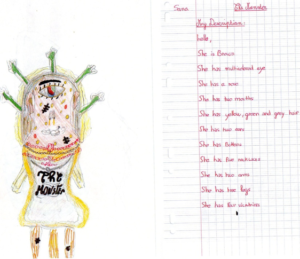 THE
MONSTER
Sana
The Monster
My Description:
hello,
She is Brown
She has multicolored eye
She has a nose
She has two mouths
She has yellow, green and grey hair
She has two ears
She has Buttons
She has five necklaces
She has two arms
She has three legs
She has four